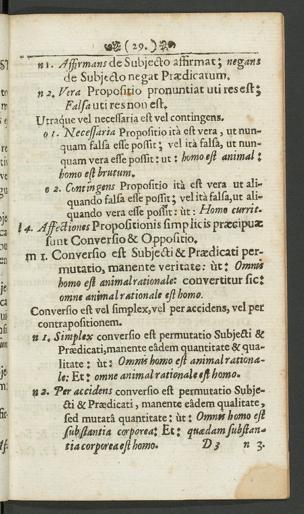 (29.)
n 1. Affirmans de Subjecto affirmat; negans
de Subjecto negat Prædicatum.
n 2. Vera Propositio pronuntiat uti res est;
Falsa uti res non est.
Utraque vel necessaria est vel contingens.
o 1. Necessaria Propositio ità est vera, ut nun-
quam falsa esse possit; vel ità falsa, ut nun-
quam vera esse possit: ut: homo est animal:
homo est brutum.
o 2. Contingens Propositio ità est vera ut ali-
quando falsa esse possit; vel ità falsa, ut ali-
quando vera esse possit: ùt: Homo currit.
l 4. Affectiones Propositionis simplicis præcipuæ
sunt Conversio & Oppositio.
m 1. Conversio est Subjecti & Prædicati per-
mutatio, manente veritate: ùt: Omnis
homo est animal rationale: convertitur sic:
omne animal rationale est homo.
Conversio est vel simplex, vel per accidens, vel per
contrapositionem.
n 1. Simplex conversio est permutatio Subjecti &
Prædicati, manente eâdem quantitate & qua-
litate: ùt: Omnis homo est animal rationa-
le: Et: omne animal rationale est homo.
n 2. Per accidens conversio est permutatio Subje-
cti & Prædicati, manente eâdem qualitate,
sed mutatâ quantitate: ùt: Omnis homo est
substantia corporea; Et: quædam substan-
tia corporea est homo. D 3 n 3.